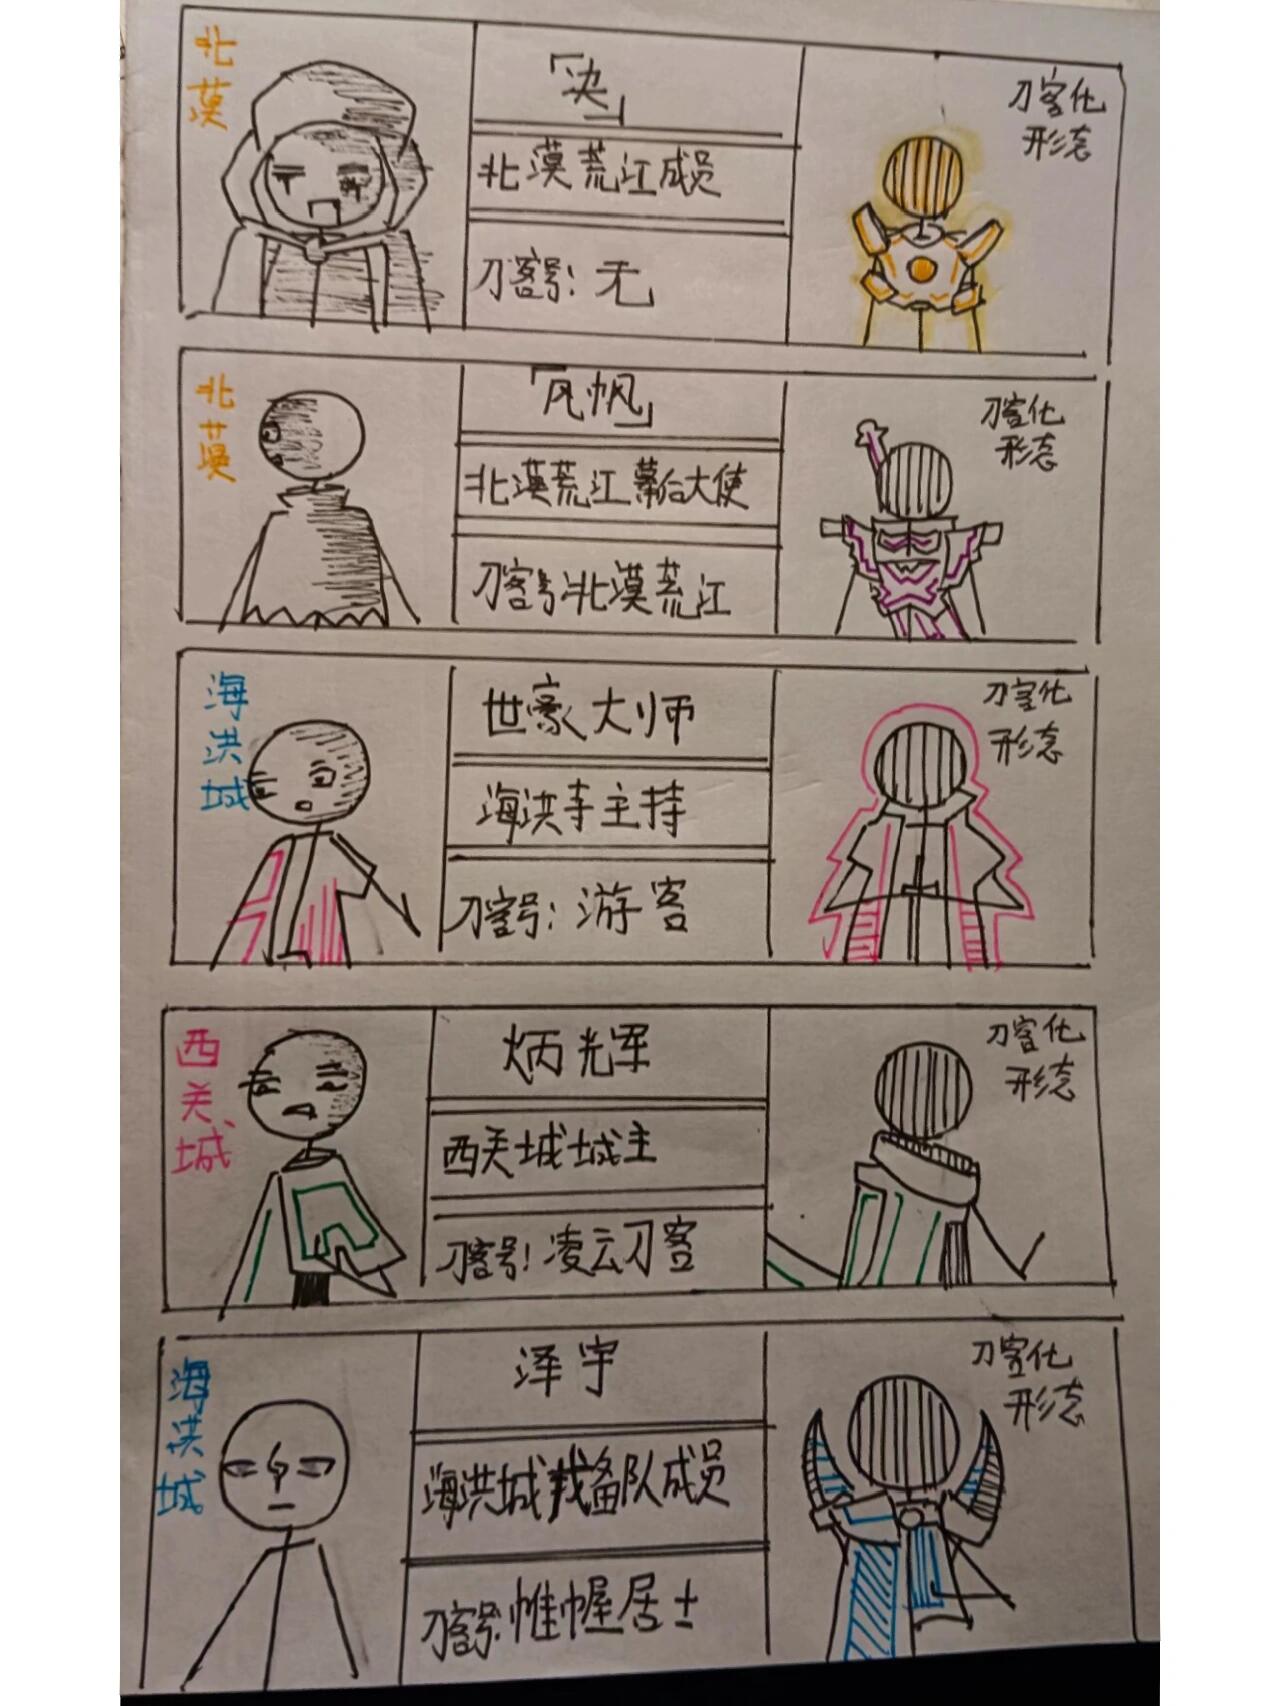 北漠
「决」
北漠荒江成员
刀客号：无
刀客化
形态
北漠
「风帆」
北漠荒江幕后大使
刀客号：北漠荒江
刀客化
形态
海洪城
世豪大师
海洪寺主持
刀客号：游客
刀客化
形态
西关城
炳辉
西关城城主
刀客号：凌云刀客
刀客化
形态
海洪城
泽宇
海洪城戒备队成员
刀客号：惟幄居士
刀客化
形态